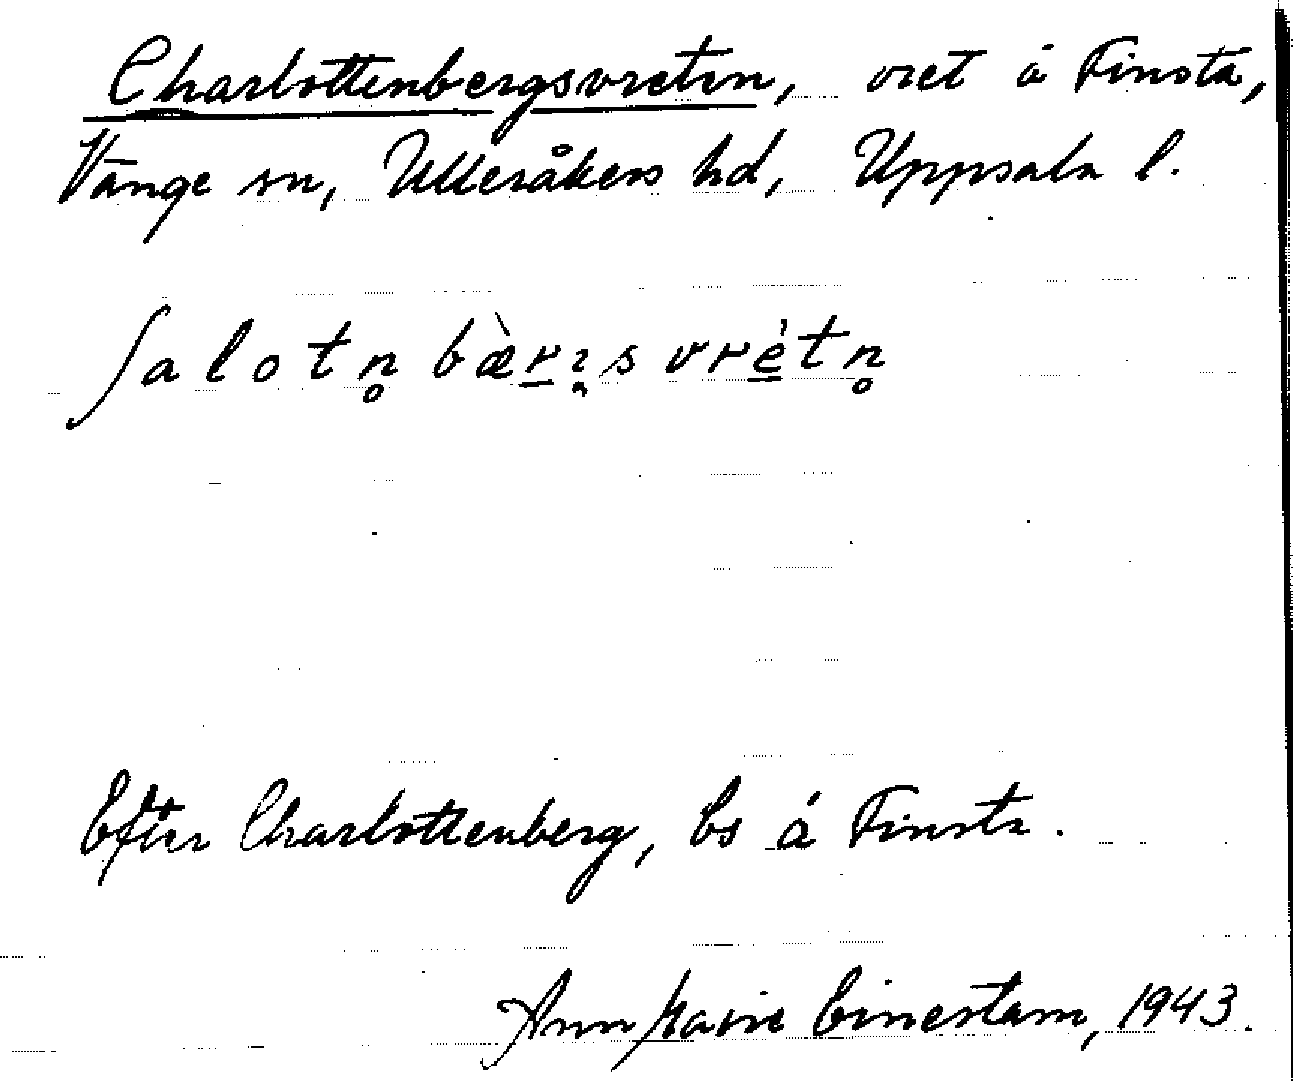 Charlottenbergsvreten, vret å Finsta,
Vänge sn, Ulleråkers hd, Uppsala l.
ʃalotn̥ bæ̀rı̥s vrètn̥
Efter Charlottenberg, bs å Finsta.
Ann Marie Einestam, 1943.